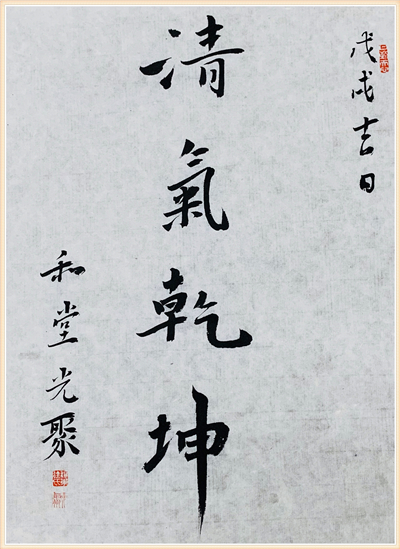 戊戌吉日
清氣乾坤
和堂光聚